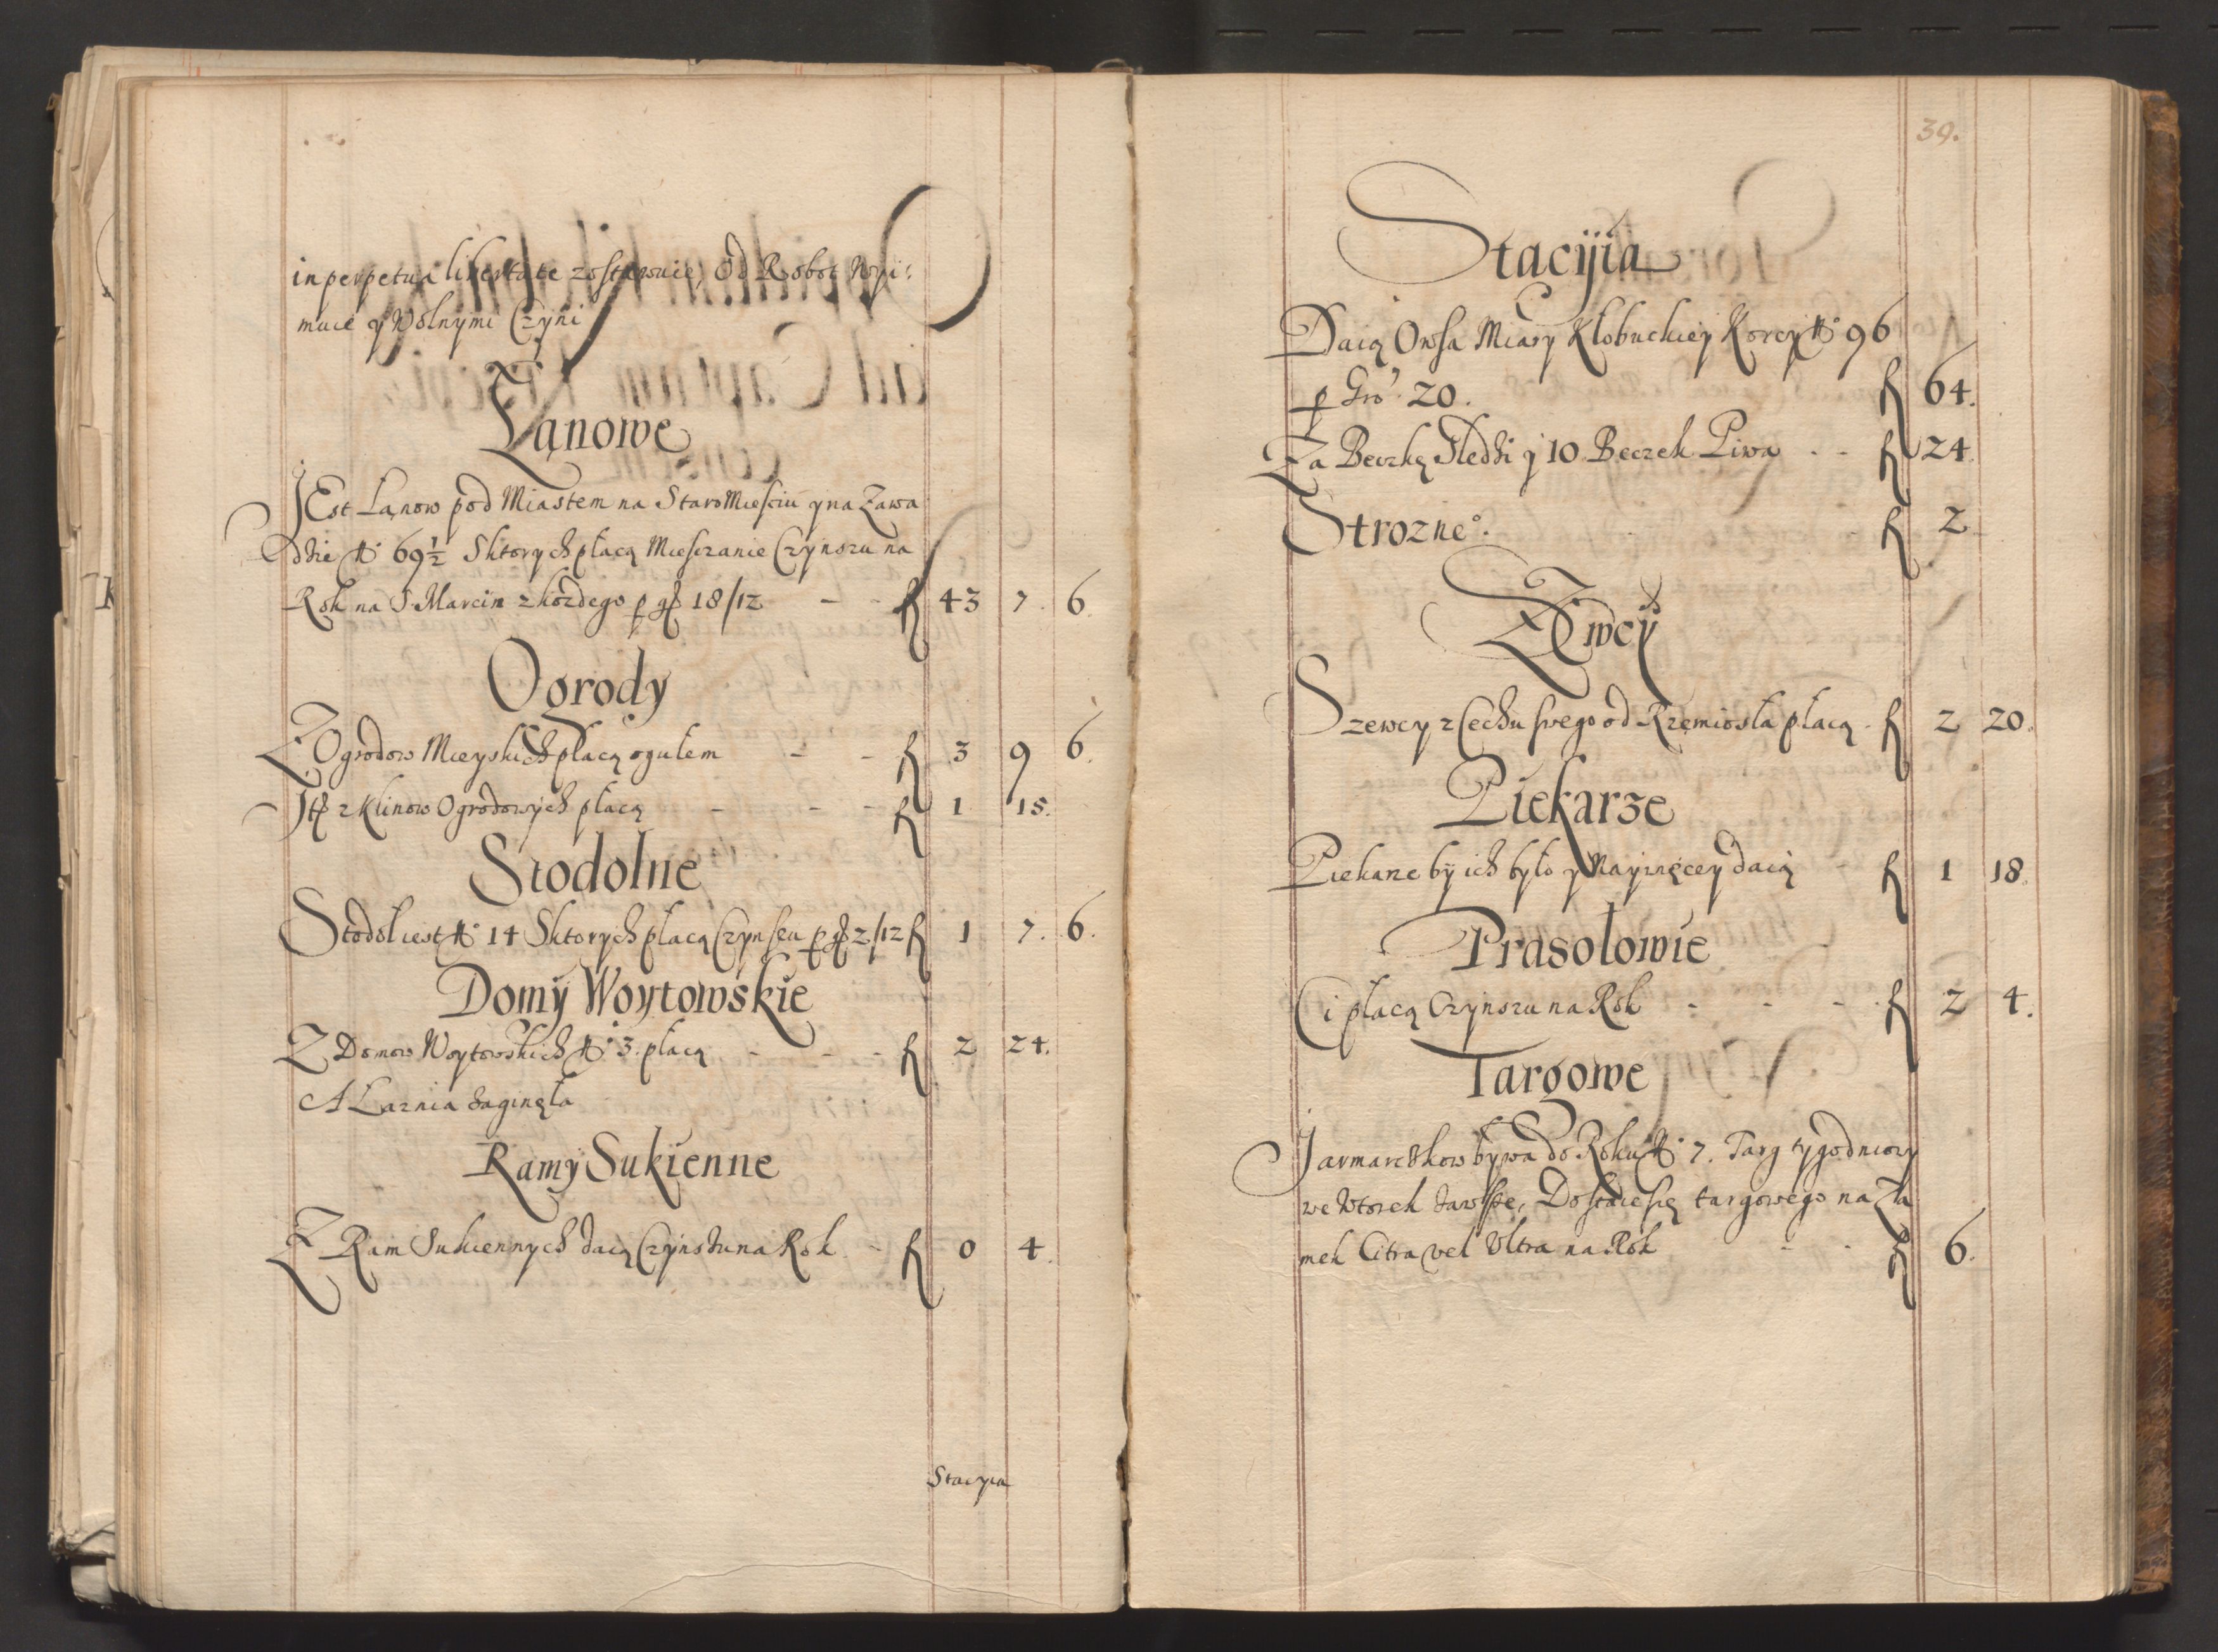 in perpetua libertate zostawuie, Od Robot Wyi:
muie y Wolnymi Czyni
Łanowe
JEst Łanow pod Miastem na StaroMiesciu y na Zawa
dzie No 69½ Sktorych płacą Miesczanie Czynszu na
Rok na S. Marcin zkozdego p gr 18/12 - - fl 43 7. 6.
Ogrody
Z Ogrodow Mieyskich płacą ogułem - - fl 3 9 6.
Jtt z Klinow Ogrodowych płacą - - - fl 1 15.
Stodolne
Stodoł iest No 14 Sktorych płacą Czynszu p gr 2/12 fl 1 7. 6.
Domÿ Woytowskie
Z Domow Woytowskich No 3. płacą - - - fl 2 24.
A Łaznia zagineła
Ramÿ Sukienne
Z Ram Sukiennych daią Czynszu na Rok - fl 0 4.
Stacyia
39.
Stacÿia
Daią Owsa Miary Kłobuckiey Korcy No 96
p Gro 20. fl 64.
Za Beczkę Sledzi y 10 Beczek Piwa - - fl 24
Strozne. fl 2
Szewcÿ
Szewcy z Cechu swego od Rzemiosła płacą - fl 2 20.
Piekarze
Piekarze by ich było y Naywięcey daią - fl 1 18.
Prasołowie
Ci płacą Czynszu na Rok - - - fl 2 4.
Targowe
Jarmarczkow bywa do Roku No 7. Targ tygodniowy
we Wtorek zawsze, Dostaie się targowego na Za
mek Citra vel Vltra na Rok - - fl 6.